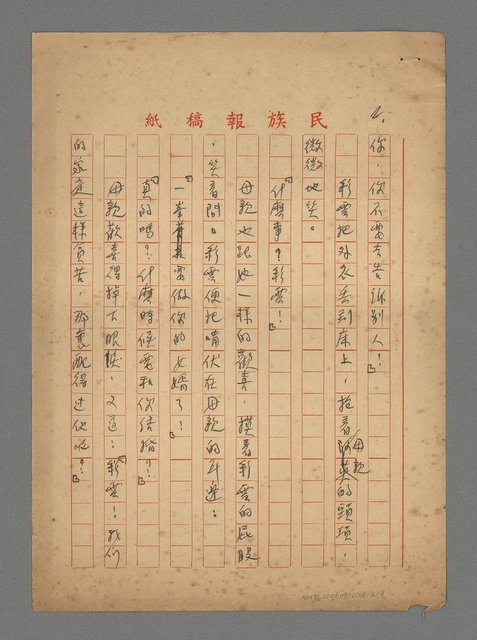 民族報稿紙
4.
你，你不要去告訴別人！」
彩雲把外衣丟到床上，抱着母親的頸項，
微微地笑。
「什麼事？彩雲！」
母親也跟她一樣的歡喜，摸着彩雲的屁股
，笑着問。彩雲便把嘴伏在母親的耳邊：
「一峯要做你的女婿了！」
「真的嗎？什麼時候要和你結婚？」
母親歡喜得掉下眼淚，又道：「彩雲！我們
的家庭這樣貧苦，那裏配得过他呢？」